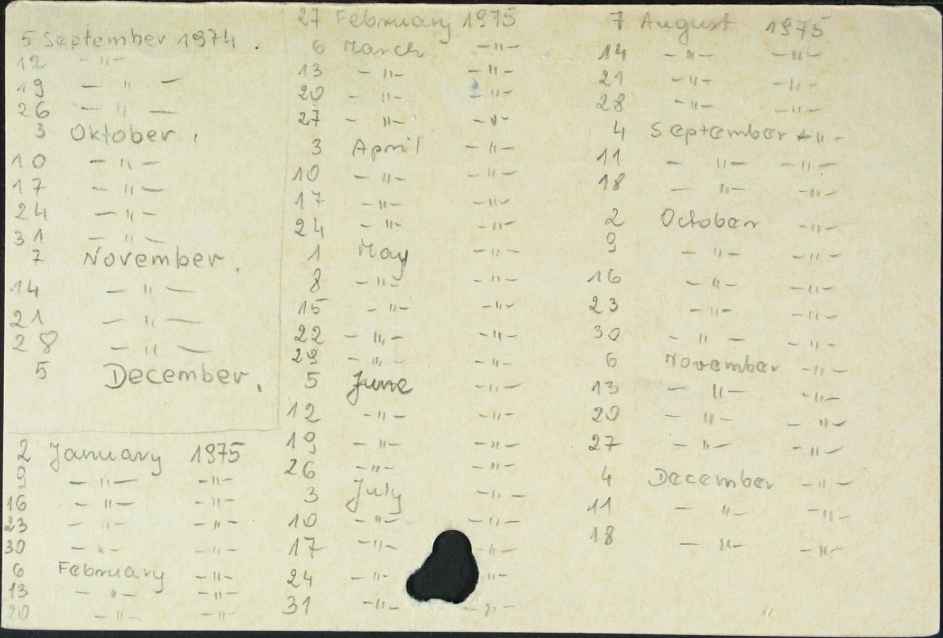 5 September 1974.
12 -"-
19 - " -
26 - " -
3 Oktober.
10 -"-
17 -"-
24 -"-
31 -"-
7 November.
14 -"-
21 -"-
28 -"-
5 December.
2 January 1975
9 -"- -"-
16 -"- -"-
23 -"- -"-
30 -"- -"-
6 February -"-
13 -"- -"-
20 -"- -"-
27 February 1975
6 March -"-
13 -"- -"-
20 -"- -"-
27 -"- -"-
3 April -"-
10 -"- -"-
17 -"- -"-
24 -"- -"-
1 May -"-
8 -"- -"-
15 -"- -"-
22 -"- -"-
29 -"- -"-
5 June -"-
12 -"- -"-
19 -"- -"-
26 -"- -"-
3 July -"-
10 -"- -"-
17 -"- -"-
24 -"- -"-
31 -"- -"-
7 August 1975
14 -"- -"-
21 -"- -"-
28 -"- -"-
4 September -"-
11 -"- -"-
18 -"- -"-
2 October -"-
9 -"- -"-
16 -"- -"-
23 -"- -"-
30 -"- -"-
6 November -"-
13 -"- -"-
20 -"- -"-
27 -"- -"-
4 December -"-
11 -"- -"-
18 -"- -"-
"